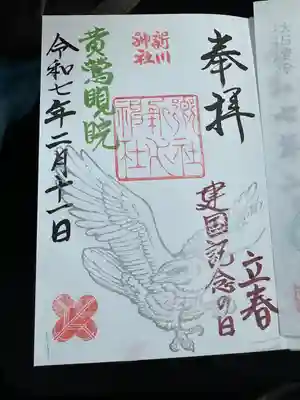 奉拝
立春
建国記念の日
新川
神社
郷社
新川
神社
黄鶯睍睆
令和七年二月十一日